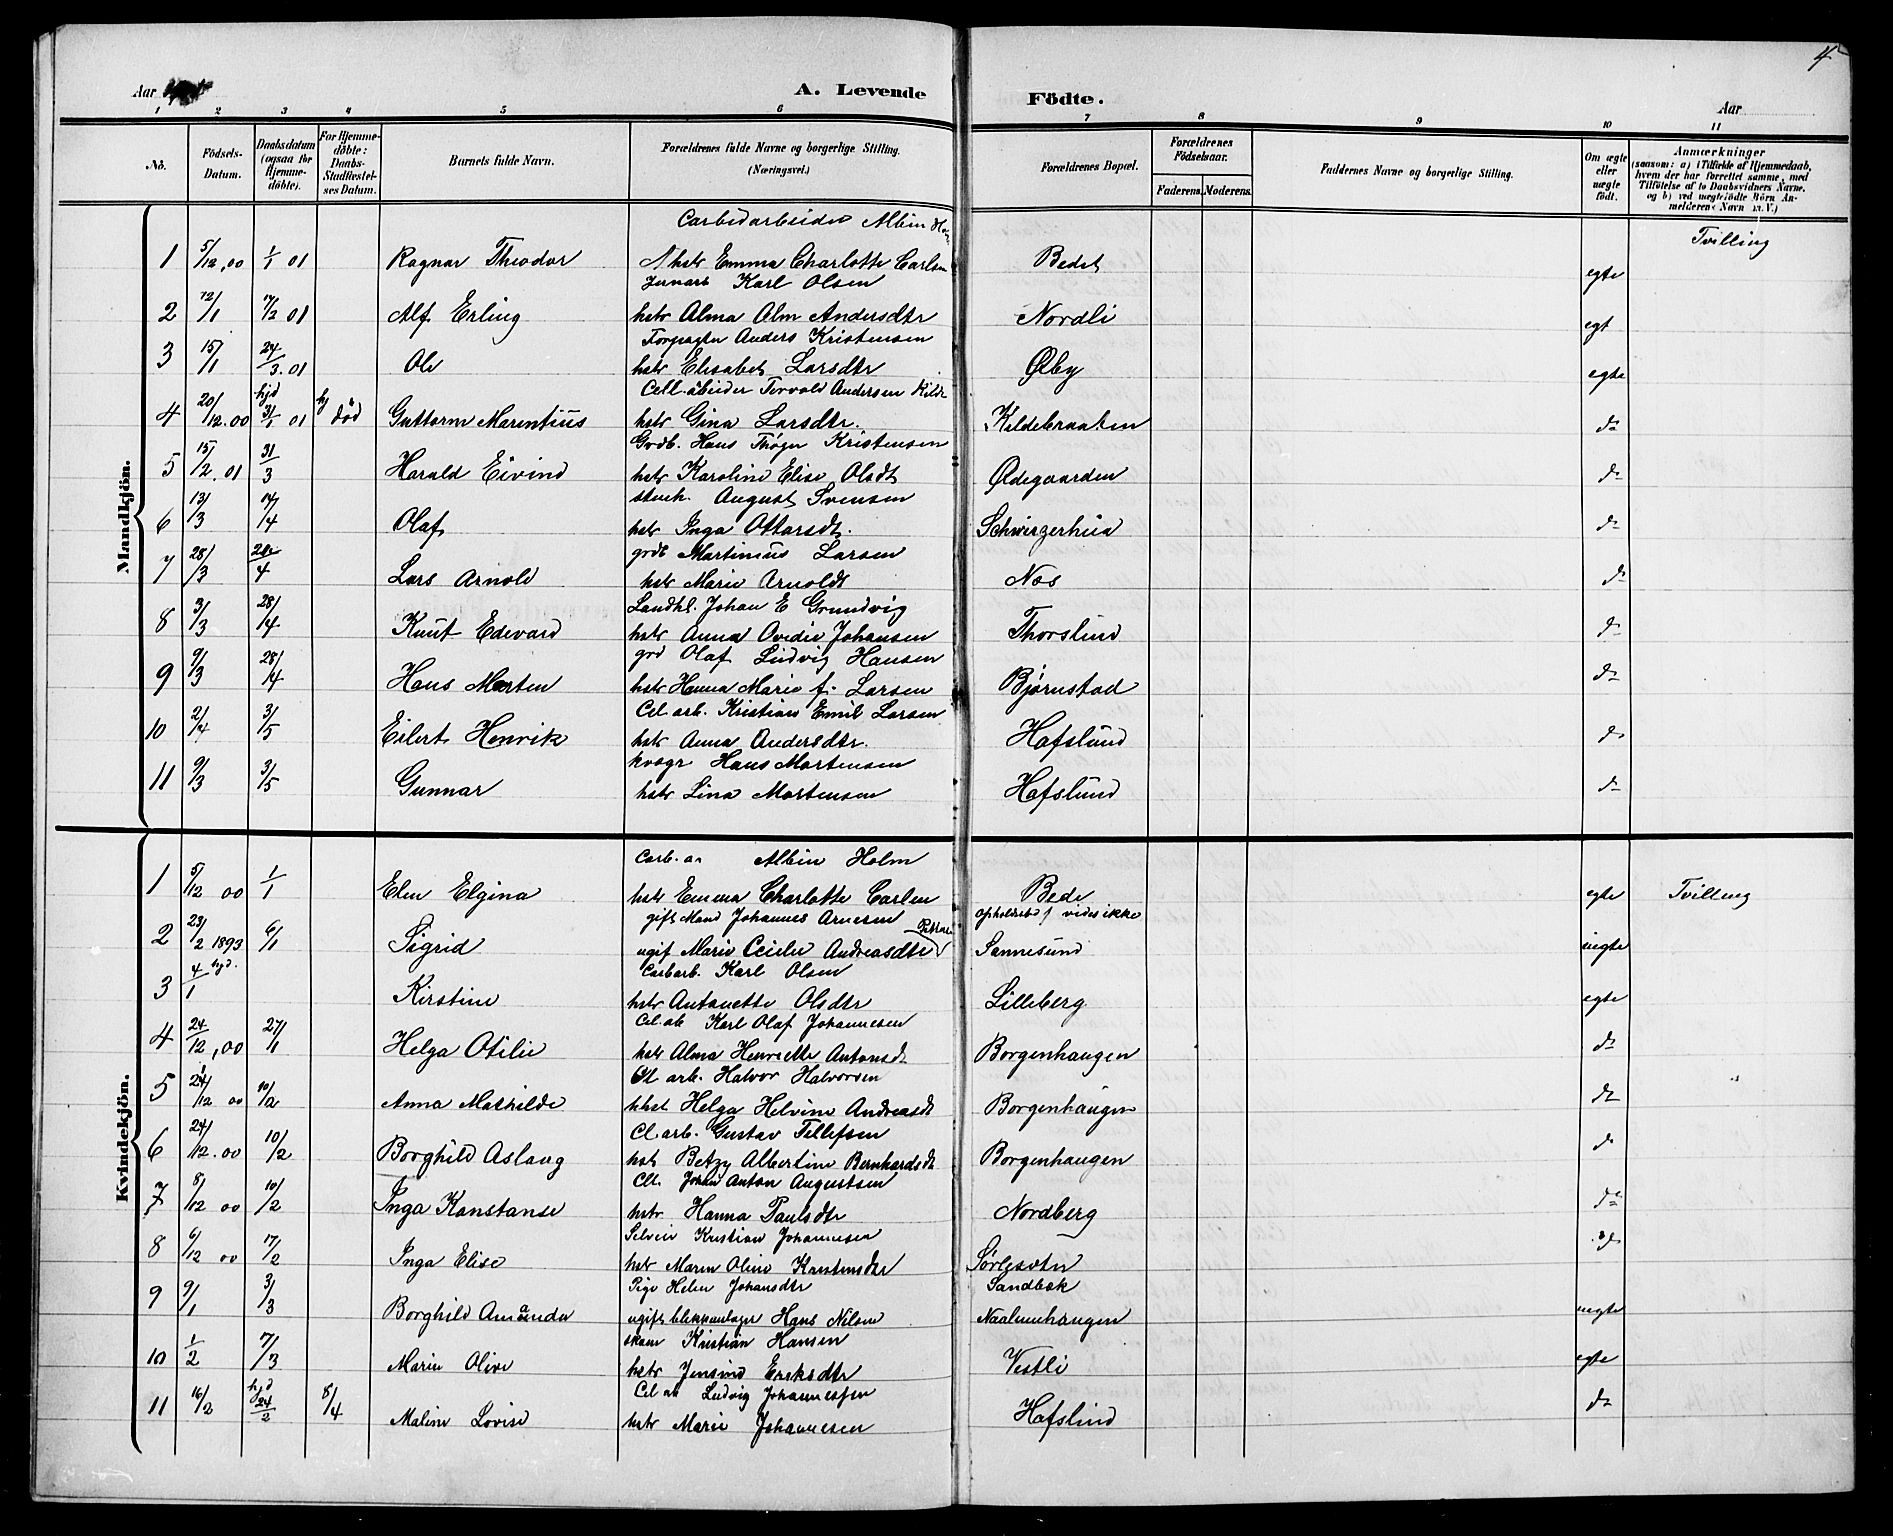 4
Aar
A. Levende Födte.
Aar
1 2 3 4 5 6 7 8 9 10 11
No.
Födsels-Datum.
Daabsdatum (ogsaa for Hjemmedöbte).
For Hjemmedöbte: Daabs-Stadfæstelses Datum.
Barnets fulde Navn.
Forældrenes fulde Navne og borgerlige Stilling. (Næringsvei.)
Forældrenes Bopæl.
Forældrenes Födselsaar.
Faderens. Moderens.
Faddernes Navne og borgerlige Stilling.
Om ægte eller uægte födt.
Anmærkninger
(saasom: a) i Tilfælde af Hjemmedaab, hvem der har forrettet samme, med Tilföielse af to Daabsvidners Navne, og b) ved uægtefödte Börn Anmelderens Navn m. V.)
Mandkjön.
Carbidarbeider Albin
1 5/12,00 1/1 01 Ragnar Theodor hstr Emma Charlotte Carlsen Bedet egte Tvilling
Karl Olsen
2 12/1 17/2 01 Alf Erling hstr Alma Alm Andersdtr Nordli egt
Forpagter Anders Kristensen
3 15/1 24/3.01 Ole hstr Elisabet Larsdtr Ølby egte
Cell. abeider Torvald Andersen Kilde
4 20/12.00 hjd 3/1 01 hj död Guttorm Marentius hstr Gina Larsdtr. Kildebraaten do
Grdb. Hans Thøger Kristensen
5 15/2.01 31/3 Harald Eivind hstr Karoline Elise Olsdt Ødegaarden do
stenh. August Svensen
6 13/3 14/4 Olaf hstr Inga Ottarsdt. do
grdb Martinius Larsen
7 28/3 4 Lars Arnold hstr Marie Arnoldt Nes do
Landhl. Johan E Grundvig
8 3/3 28/4 Knut Edevard hstr Anna Ovedie Johansen Thorslund do
grd Olaf Ludvig Hansen
9 9/3 28/4 Hans Morten hstr Hanna Marie f. Larsen Bjørnstad do
Cel. arb. Kristian Emil Larsen
10 2/4 3/5 Eilert Henrik hstr Anna Andersdtr. Hafslund do
Hans Mortensen
11 9/3 3/5 Gunnar hstr Lina Mortensen Hafslund do
Kvindekjön.
Carb. a. Albin Holm
1 5/12 00 1/1 Elen Elgina hstr Emma Charlotte Carlen Bede egte Tvilling
gift Mand Johannes Arnesen opholdsted vides ikke
2 23/2 1893 6/1 Sigrid ugif Marie Ceielie Andreasdtr Sannesund uegte
Carbarb. Karl Olsen
3 4/1 hjd. Kirstine hstr Antonette Olsdtr Lilleberg egte
Cel. ab Karl Olaf Johannesen
4 24/12,00 27/1 Helga Otilie hstr Alma Henriette Antonsdt Borgenhaugen do
Cl arb. Halvor Halvorsen
5 24/12 00 10/2 Anna Mathilde hst Helga Helvine Andreasdt Borgenhaugen do
Cl. arb. Gustav Tellefsen
6 24/12.00 10/2 Borghild Aslaug hst Betzy Albertine Bernhardsdt Borgenhaugen do
Cll. Johan Anton Augustsen
7 8/12 00 10/2 Inga Konstanse hstr Hanna Paulsdtr Nordberg do
Selvei Kristian Johannesen
8 6/12 00 17/2 Inga Elise hstr Maren Oline Karstensdtr do
Pige Helen Johansdtr Sandbæk
9 9/1 3/3 Borghild Amanda ugift Hans Nilsen Naalumhaugen uegte
skom Kristian Hansen
10 1/2 7/3 Marie Olive hstr Jensine Eriksdtr Vestli egte
Cel ab Ludvig Johannessen
11 16/2 hjd 24/2 8/4 Maline Lovise hstr Marie Johannesen Hafslund do